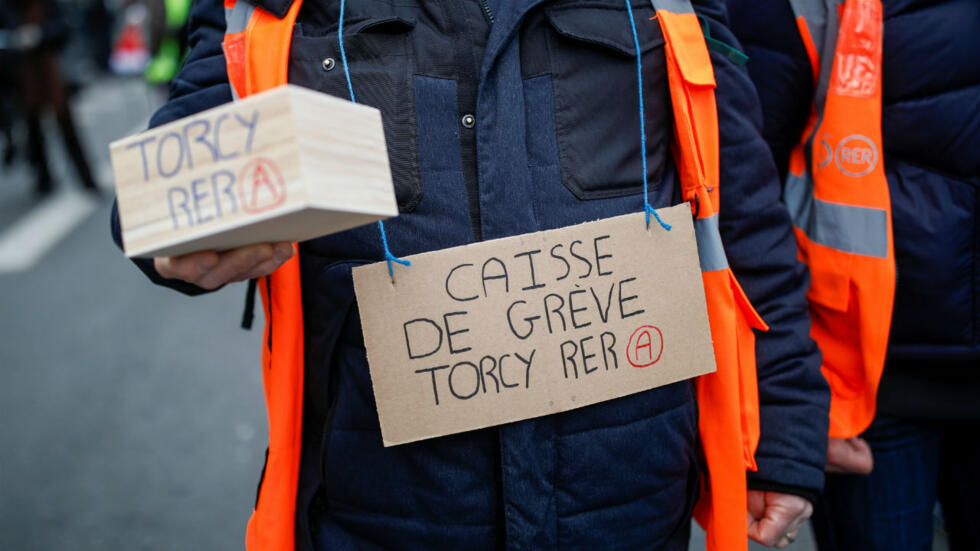 TORCY
RER A
CAISSE
DE GRÈVE
TORCY RER A
RER